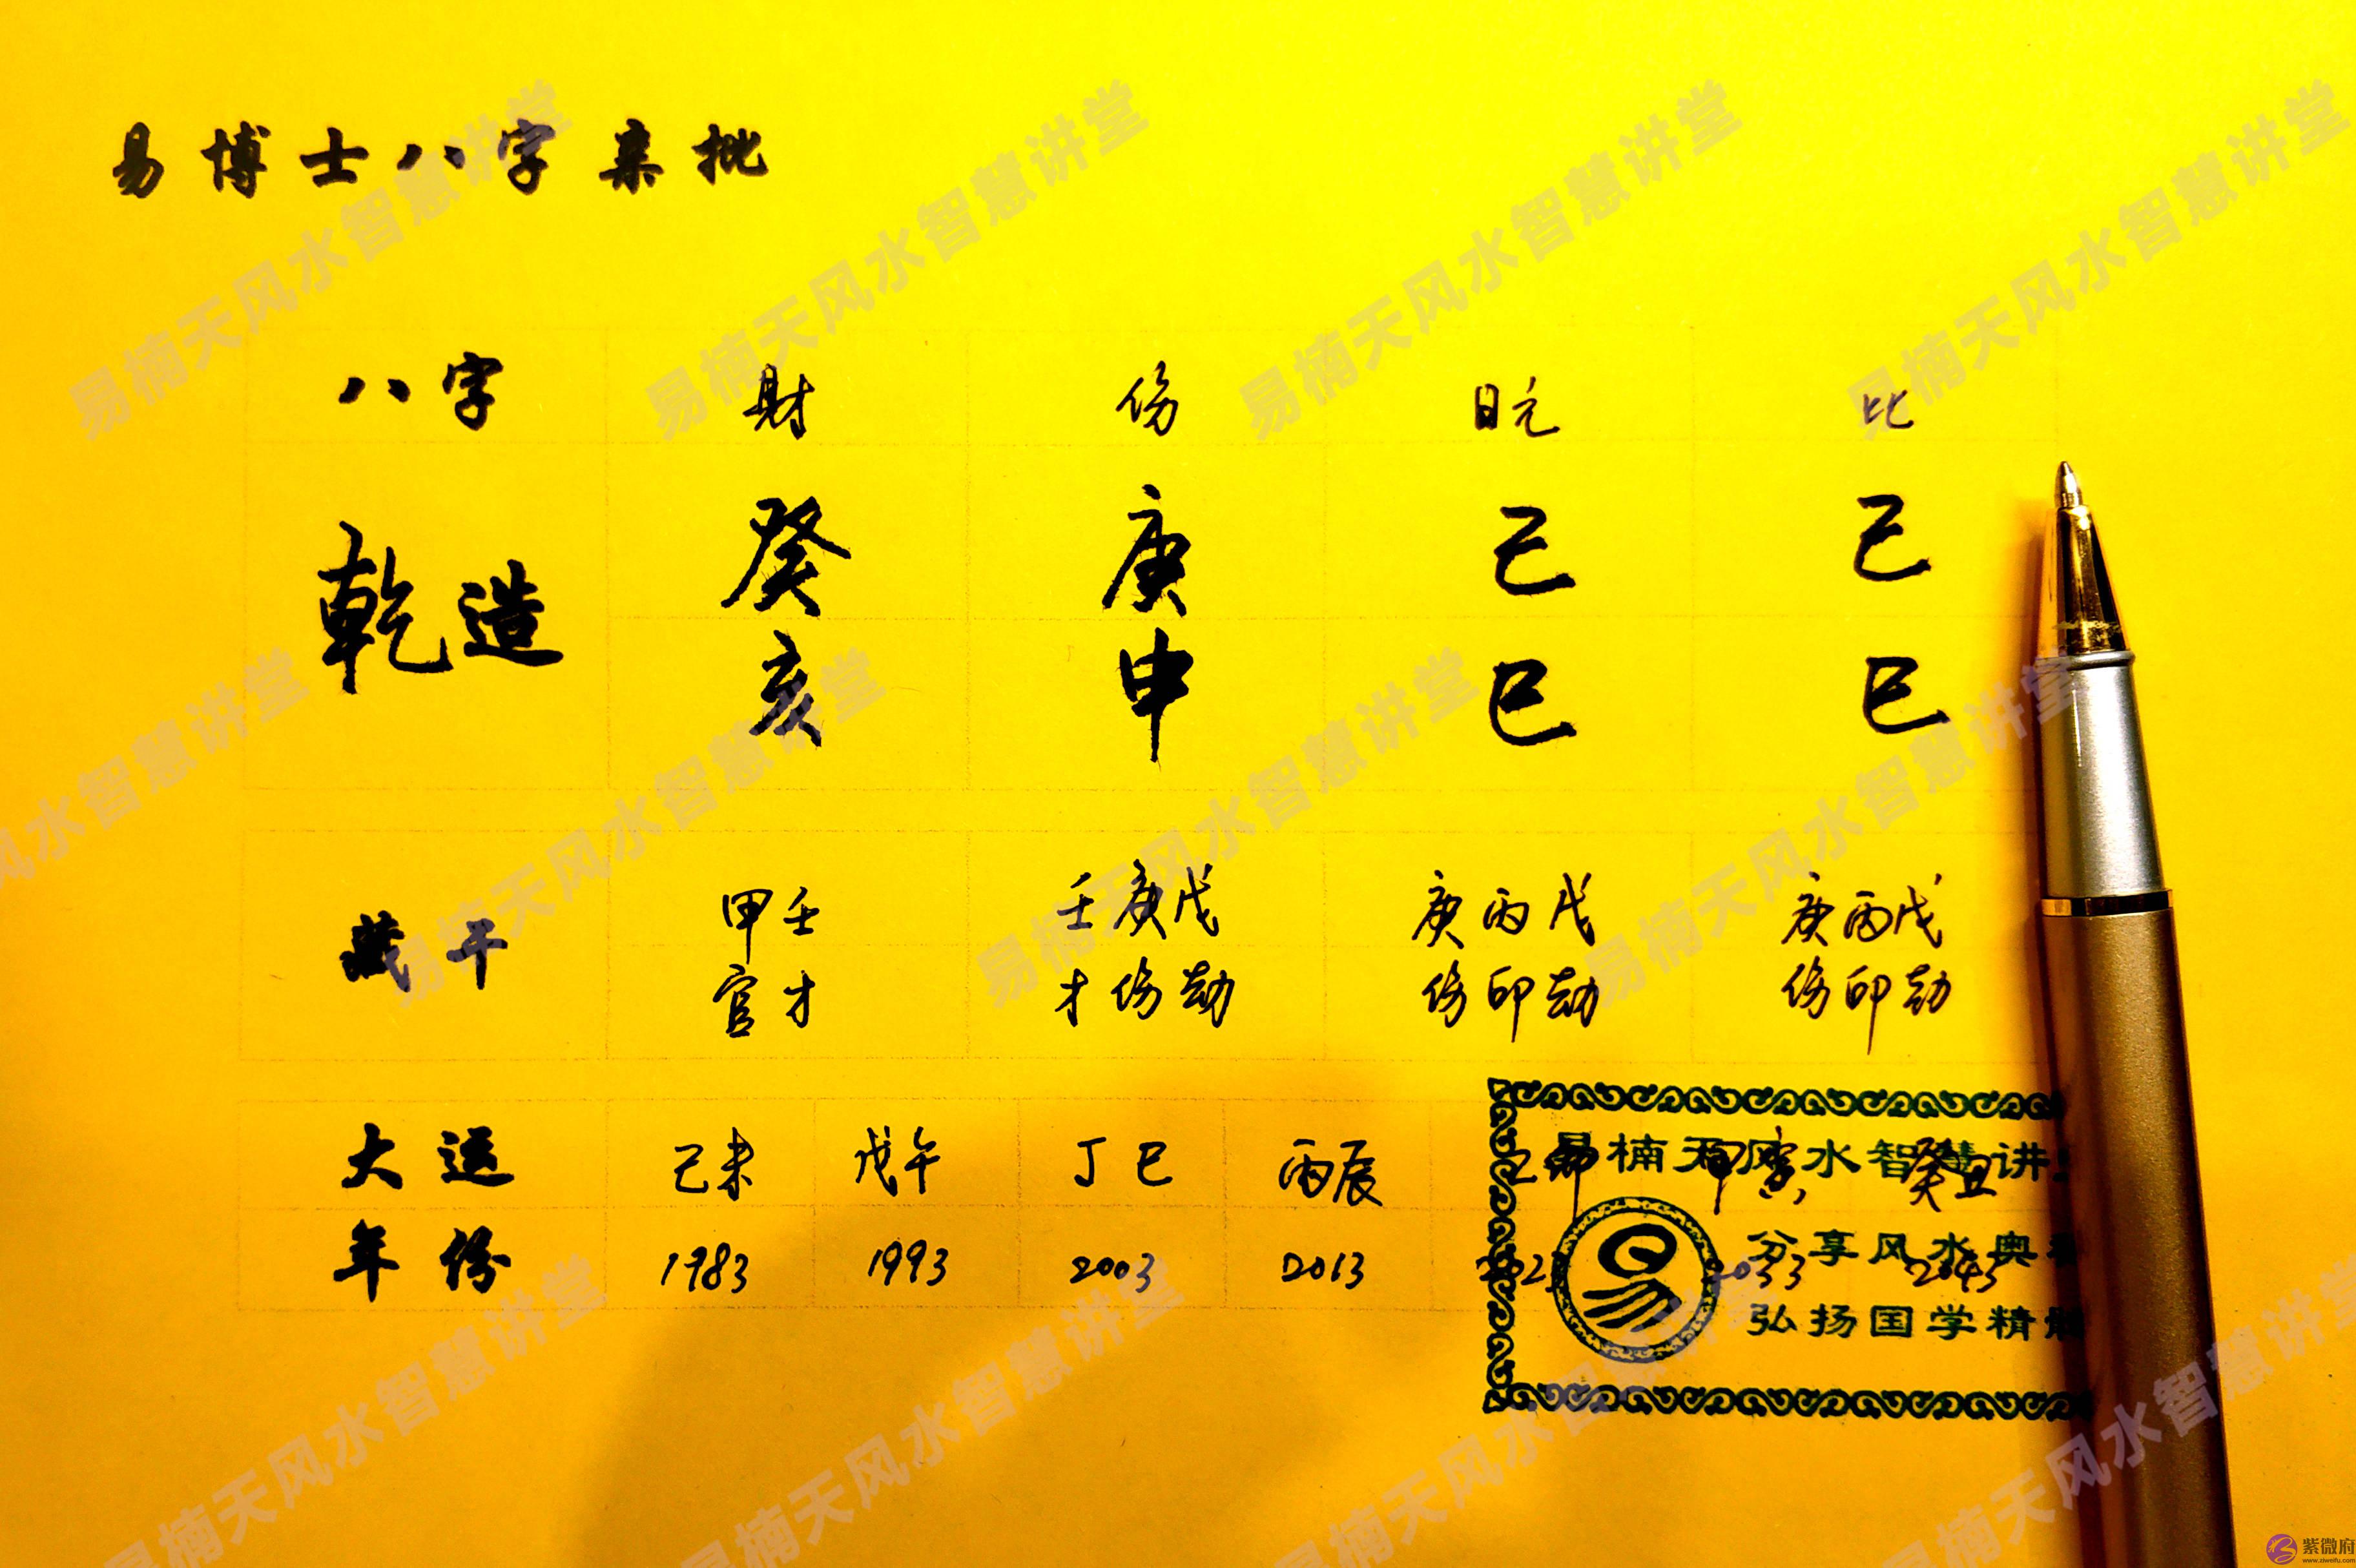 易博士八字亲批
八字 财 伤 日元 比
乾造 癸 庚 己 己
亥 申 巳 巳
藏干 甲壬 壬庚戊 庚丙戊 庚丙戊
官才 才伤劫 伤印劫 伤印劫
大运 己未 戊午 丁巳 丙辰 乙卯 甲寅 癸丑
年份 1983 1993 2003 2013 2033 2043
易楠天风水智慧讲
分享风水奥
弘扬国学精
易楠天风水智慧讲堂
紫微府
www.ziweifu.com